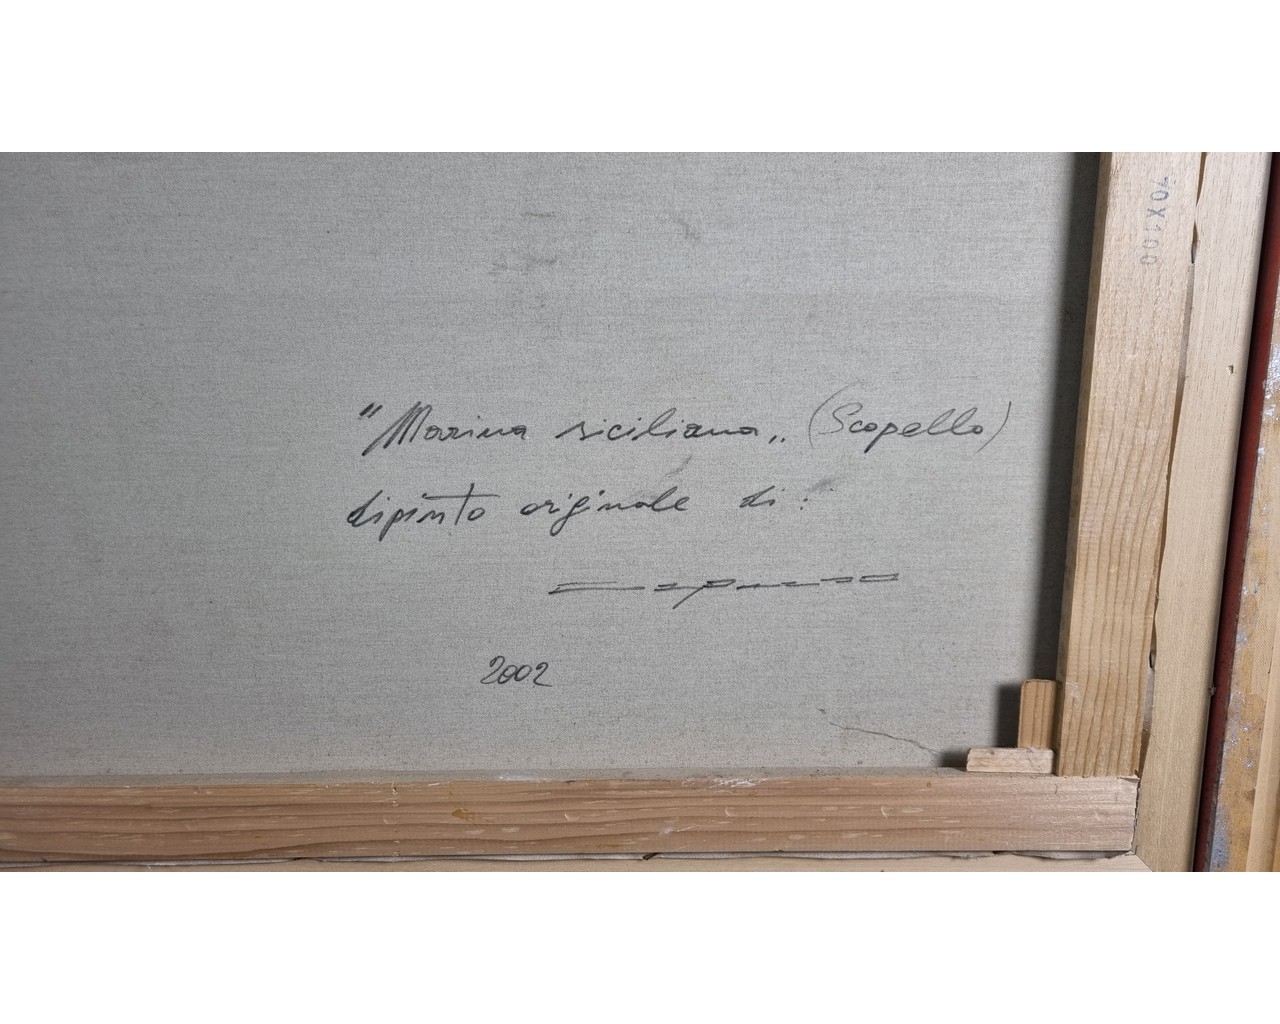 "Marina siciliana,, (Scopello)
dipinto originale di:
2002
70X100